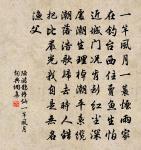 一竿風月一蓑煙雨家
在釣台西住賣魚生怕
近城門況肯到紅塵深
處潮生理櫂潮平系纜
潮落浩歌歸去時人錯
把比嚴光我自是無名
漁父
陸游鵲橋仙一竿風月